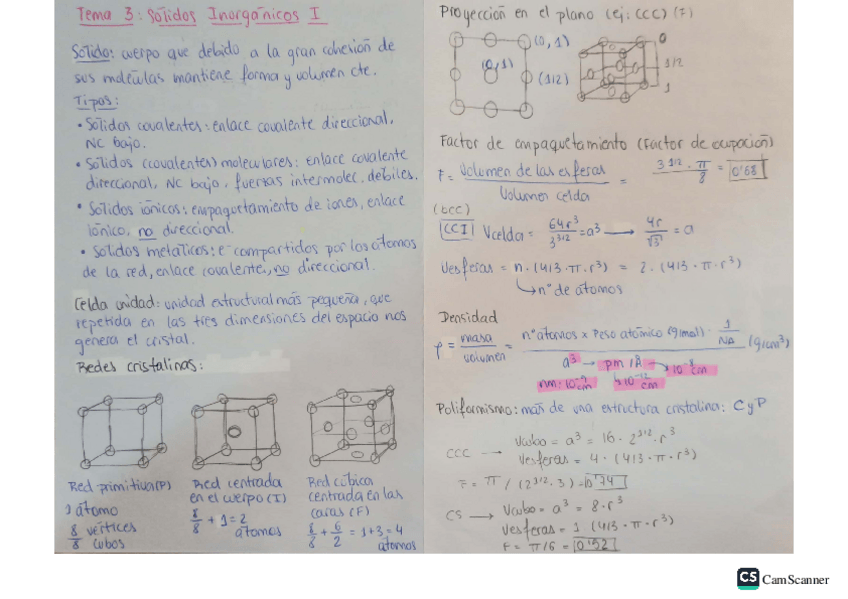 Tema 3: Sólidos Inorgánicos I
Sólido: cuerpo que debido a la gran cohesión de
sus moléculas mantiene forma y volumen cte.
Tipos:
• Sólidos covalentes: enlace covalente direccional,
NC bajo.
• Sólidos (covalentes) moleculares: enlace covalente
direccional, NC bajo, fuerzas intermolec. débiles.
• Sólidos iónicos: empaquetamiento de iones, enlace
iónico, no direccional.
• Sólidos metálicos: e⁻ compartidos por los átomos
de la red, enlace covalente, no direccional.
Celda unidad: unidad estructural más pequeña, que
repetida en las tres dimensiones del espacio nos
genera el cristal.
Redes cristalinas:
Red primitiva (P)
1 átomo
8/8 vértices
cubos
Red centrada
en el cuerpo (I)
8/8 + 1 = 2
átomos
Red cúbica
centrada en las
caras (F)
8/8 + 6/2 = 1+3 = 4
átomos
Proyección en el plano (ej: CCC) (F)
(0,1)
(0,1)
(1/2)
0
1/2
1
Factor de empaquetamiento (Factor de ocupación)
F = Volumen de las esferas / Volumen celda = 3^1/2 · π / 8 = 0'68
(bcc)
CCI Vcelda = 64r³ / 3^3/2 = a³ → 4r / √3 = a
Vesferas = n · (4/3 · π · r³) = 2 · (4/3 · π · r³)
↳ nº de átomos
Densidad
ρ = masa / volumen = nº átomos x Peso atómico (g/mol) · 1/NA / a³ (g/cm³)
a³ → pm / Å → 10⁻⁸ cm
nm: 10⁻⁹ ↳ 10⁻¹² cm
Poliformismo: más de una estructura cristalina: C y P
CCC → Vcubo = a³ = 16 · 2^3/2 · r³
Vesferas = 4 · (4/3 · π · r³)
F = π / (2^3/2 · 3) = 0'74
CS → Vcubo = a³ = 8 · r³
Vesferas = 1 (4/3 · π · r³)
F = π/6 = 0'52
CS CamScanner